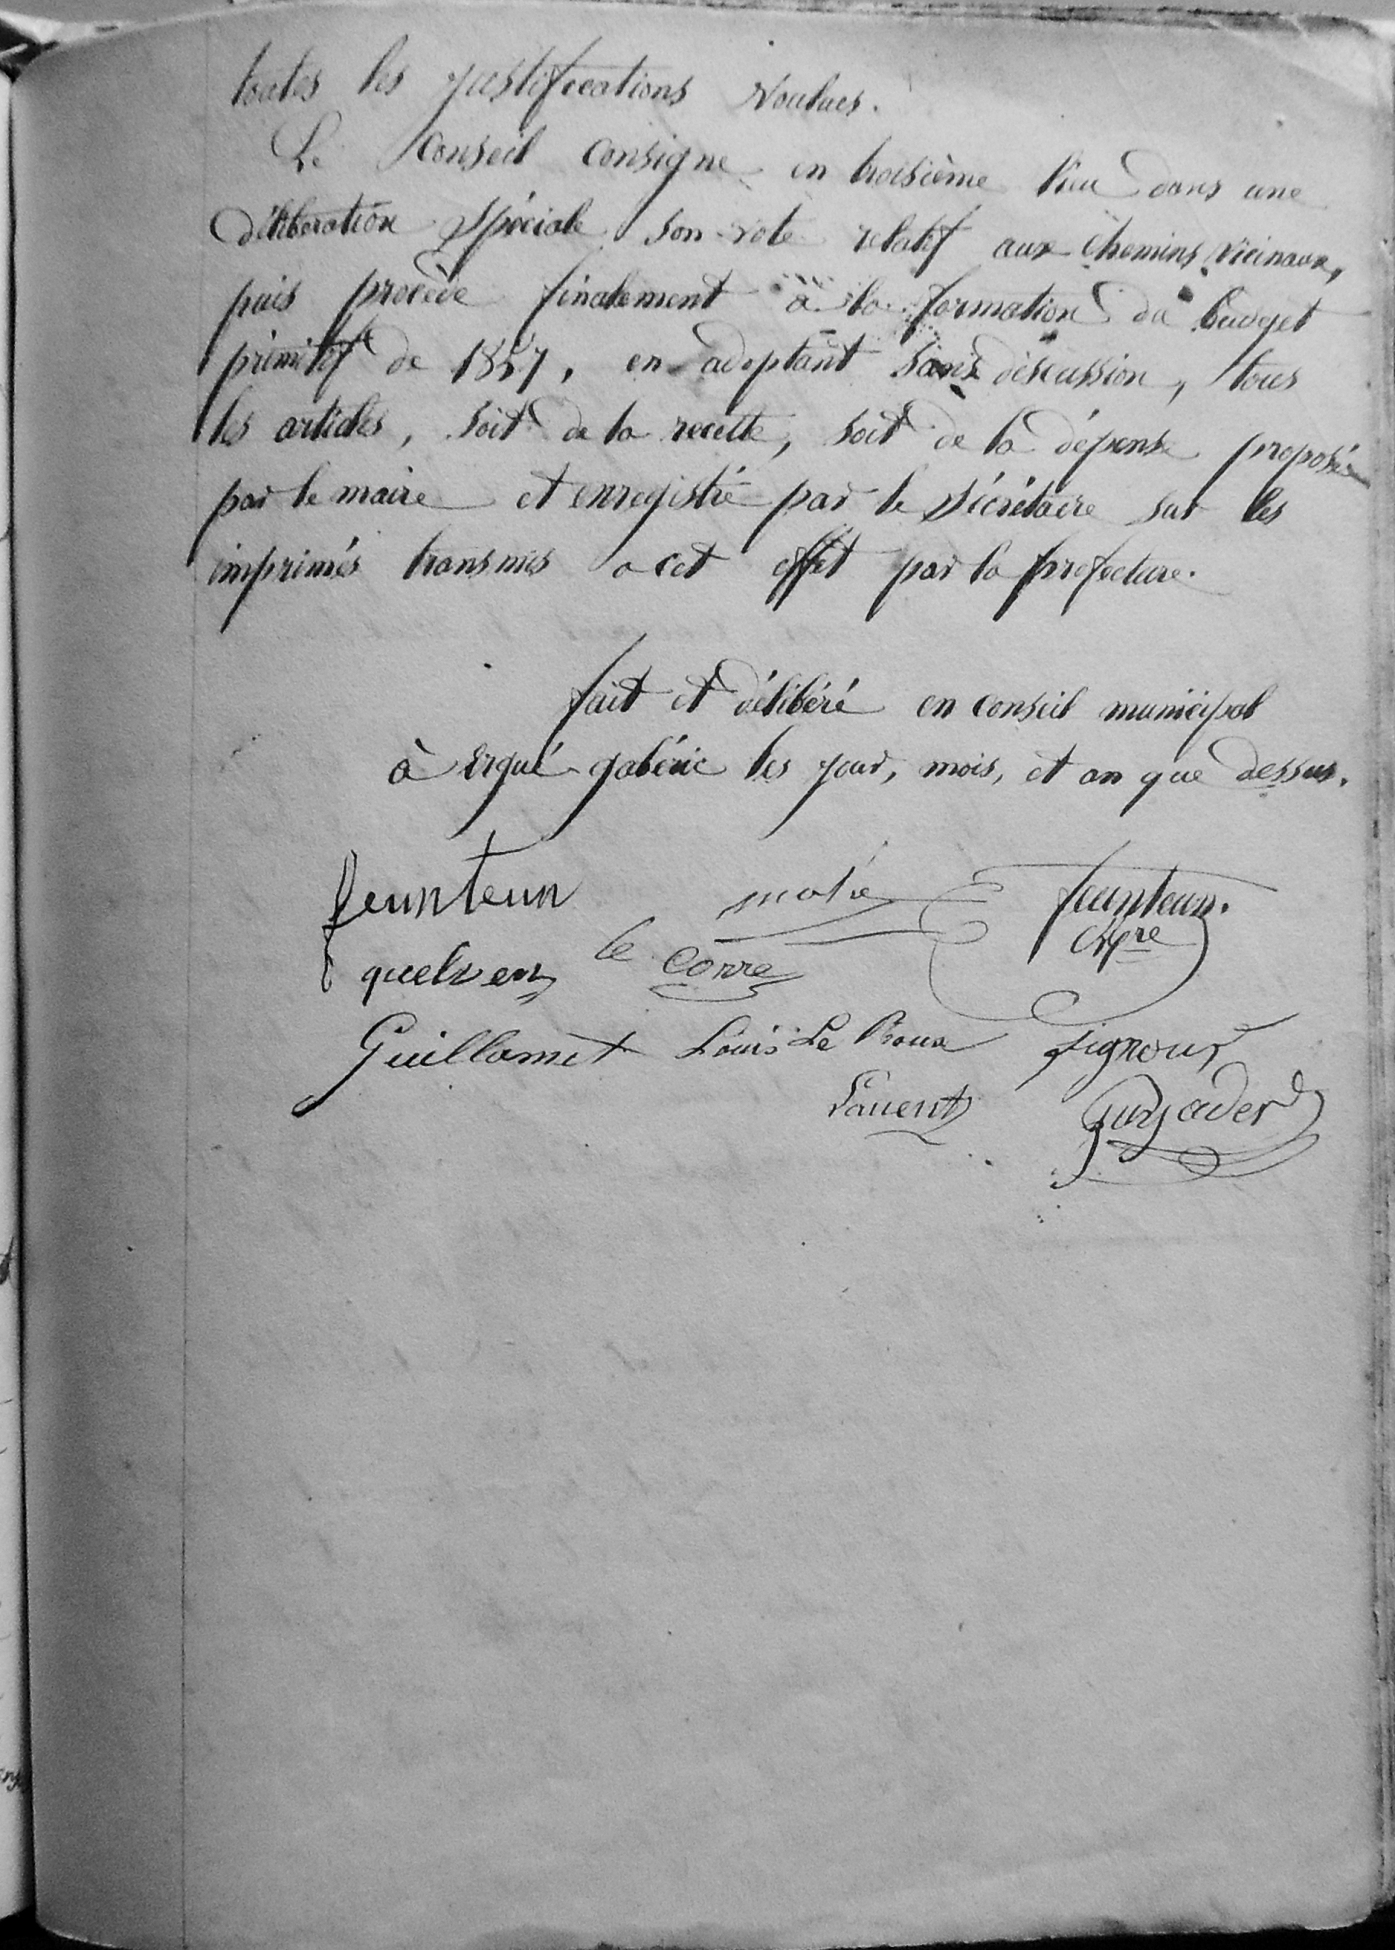 toutes les justifications voulues.
Le Conseil consigne en troisième lieu dans une
délibération spéciale son vote relatif aux chemins vicinaux,
puis procède finalement à la formation du budget
primitif de 1857, en adoptant sans discussion, tous
les articles, soit de la recette, soit de la dépense proposés
par le maire et enregistré par le sécrétaire sur les
imprimés transmis a cet effet par la préfecture.
fait et délibéré en conseil municipal
à Ergué-gabéric les jour, mois, et an que dessus.
feunteun mahé feunteun.
quelven le Corre
Guillamet Louis Le Roux Signour
Laurent guyader